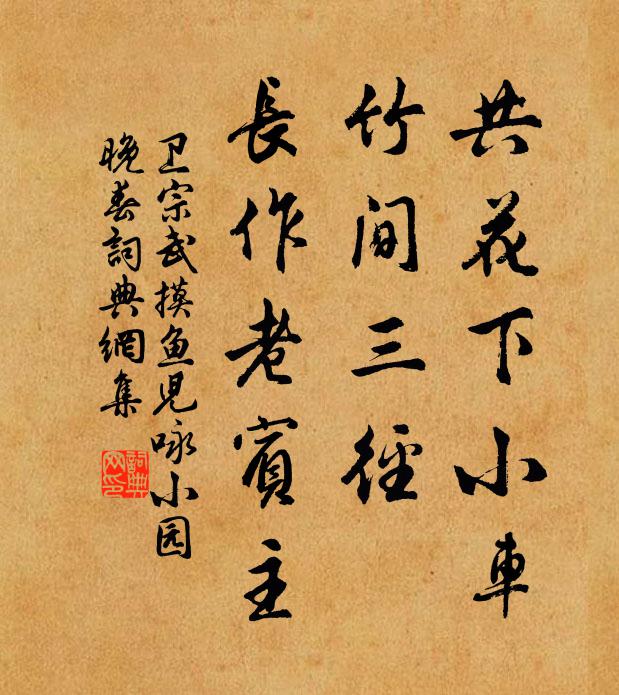 共花下小車
竹间三徑
長作老賓主
卫宗武摸鱼児咏小园
晚春詞典網集
詞典网印